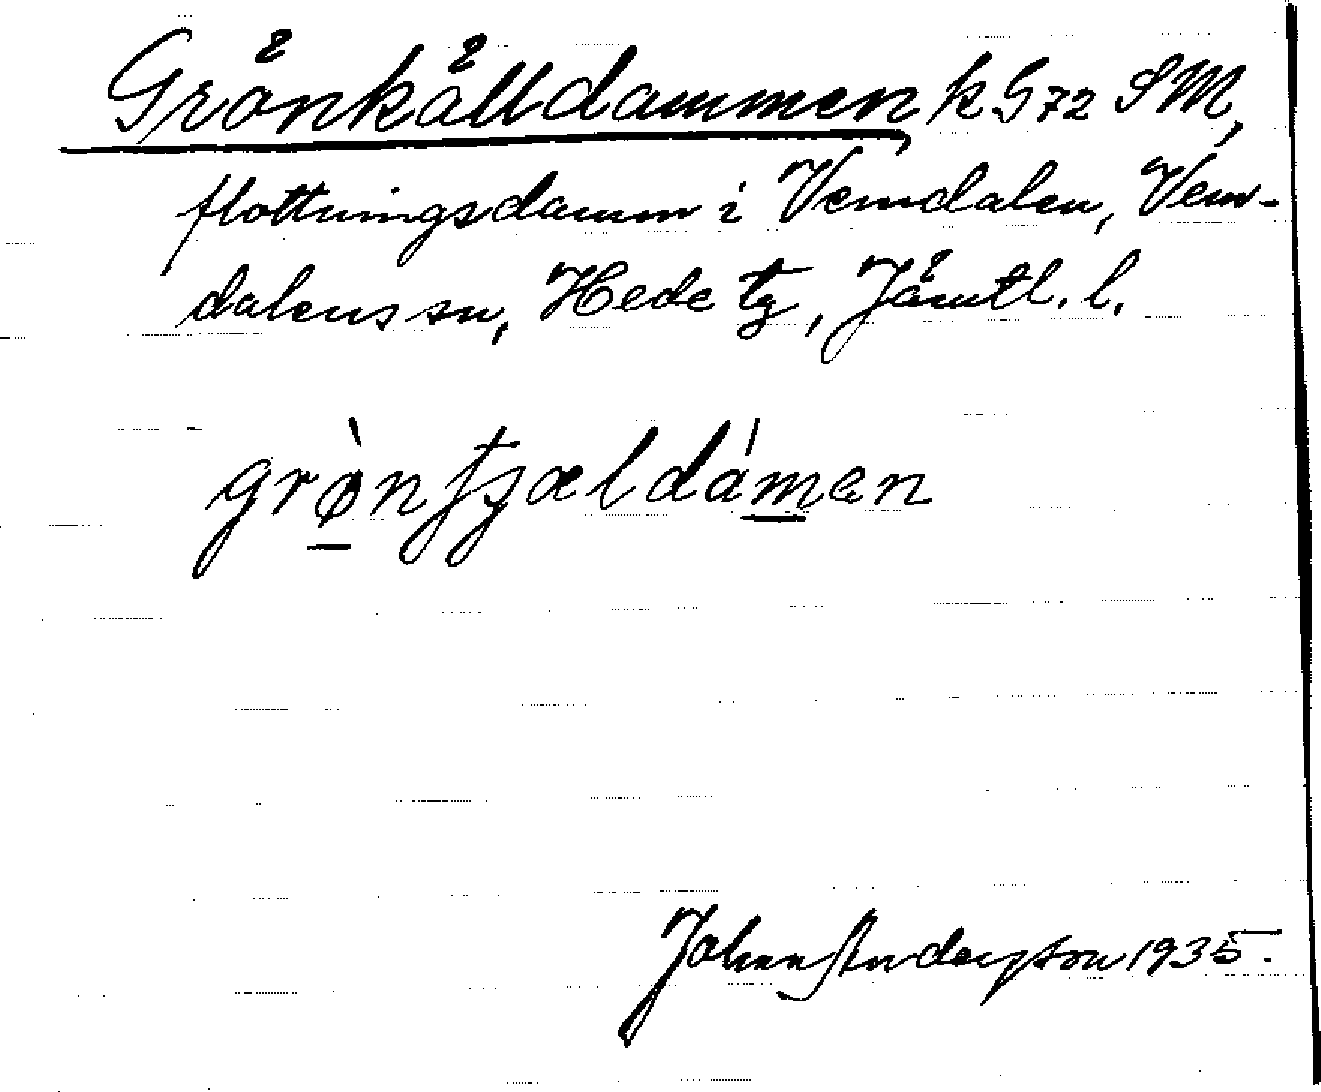 Grönkälldammen k G72 SM,
flottningsdamm i Vemdalen, Vem-
dalens sn, Hede tg, Jämtl. l.
grø̀nʃʃældámen
Johan Anderson 1935.